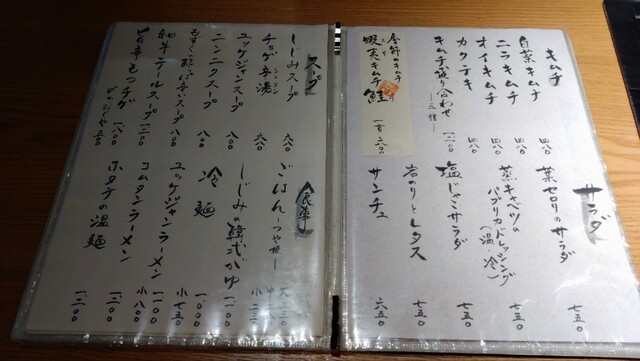 キムチ
白菜キムチ 四八〇
ニラキムチ 四八〇
オイキムチ 四八〇
カクテキ 四八〇
キムチ盛り合わせ
―五種―
一二〇〇
今節のキムチ
鮭
サラダ
葉セロリのサラダ 七五〇
蒸キャベツの
パプリカドレッシング
(温 冷)
七五〇
塩じゃこサラダ 七五〇
岩のりとレタス 七五〇
サンチュ 六五〇
スープ
しじみスープ 六八〇
チョゲ辛湯 六八〇
ユッケジャンスープ 八〇〇
ニンニクスープ 八〇〇
八〇〇
和牛テールスープ 一二〇〇
旨辛もつチゲ 一八〇〇
食事
ごはん ―つや姫―
大 三三〇
小 二二〇
しじみの韓式がゆ 一一〇〇
冷麺 一〇〇〇
小 七五〇
ユッケジャンラーメン 一一〇〇
小 八〇〇
コムタンラーメン 一二〇〇
ホタテの温麺 一二〇〇